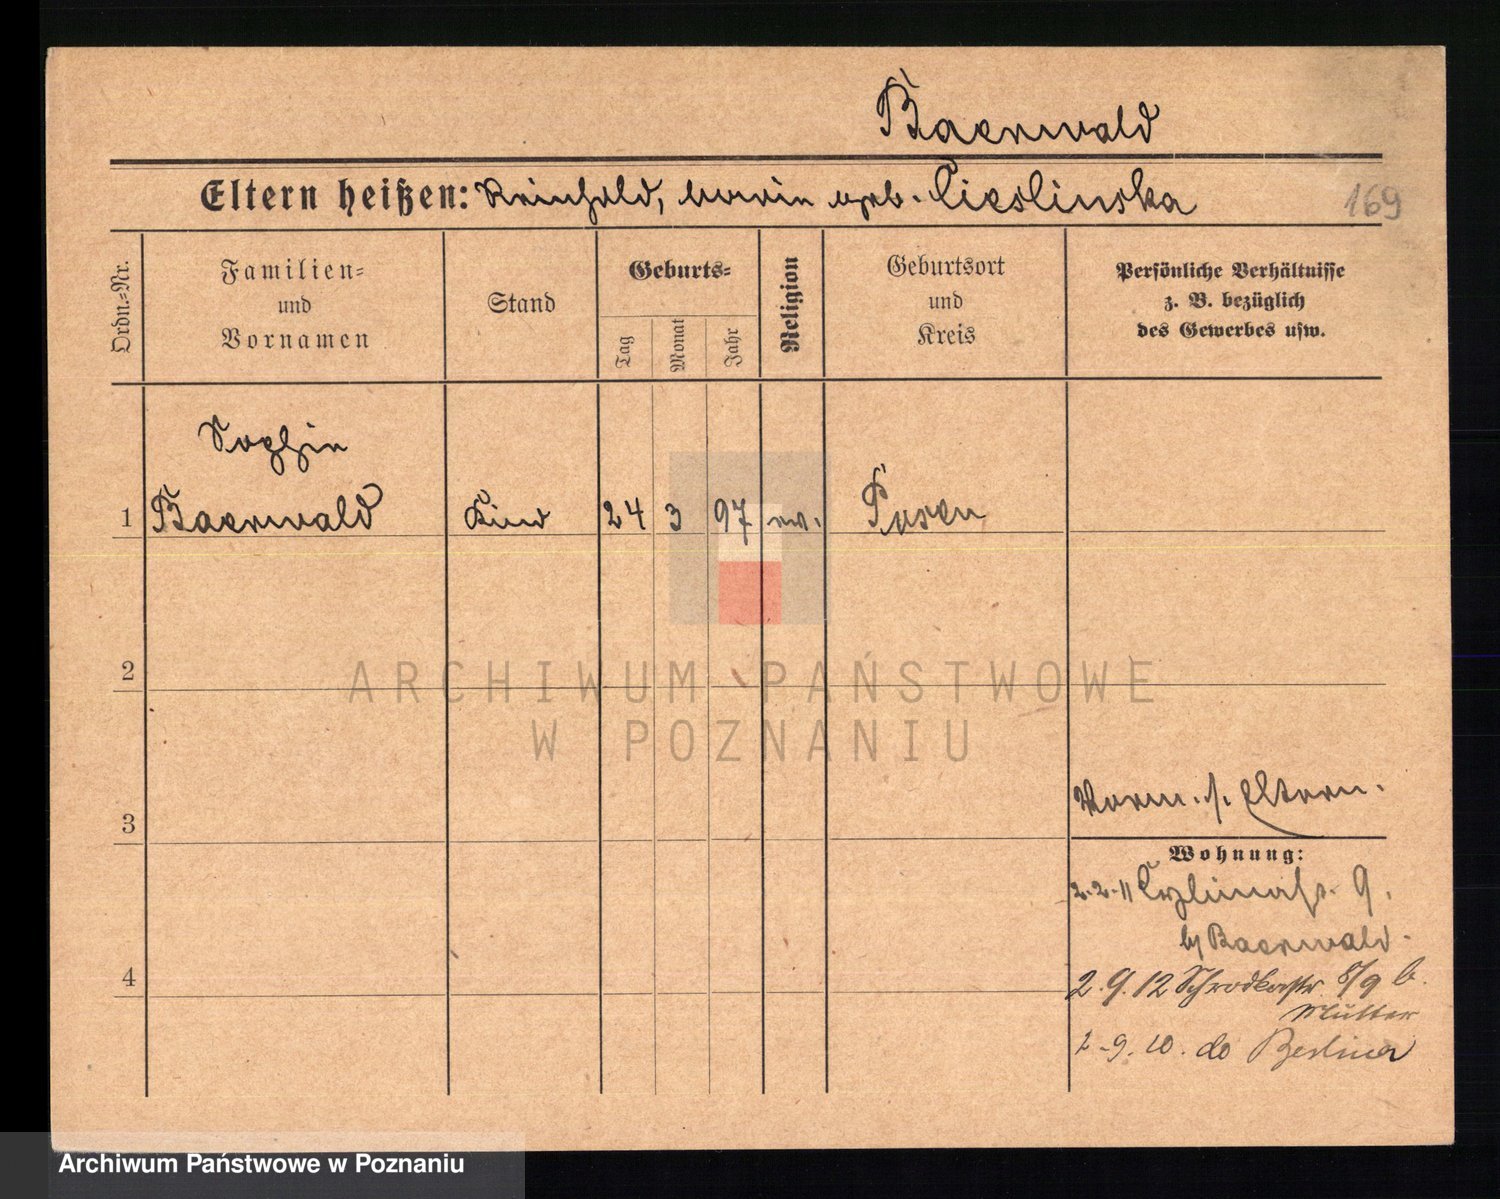 Baerwald
Eltern heißen: Reinhold, Marie geb. Cieslinska
169
Ordn.=Nr.
Familien=
und
Vornamen
Stand
Geburts=
Tag
Monat
Jahr
Religion
Geburtsort
und
Kreis
Persönliche Verhältnisse
z. B. bezüglich
des Gewerbes usw.
Sophie
1 Baerwald Kind 24 3 97 ev. Posen
2
ARCHIWUM PAŃSTWOWE
W POZNANIU
3
Vorm. s. Eltern.
Wohnung:
2-2-11 9.
b/ Baerwald.
4
2.9.12 Schrodkastr. 8/9 b.
Mutter
2-9. do Berlina
Archiwum Państwowe w Poznaniu